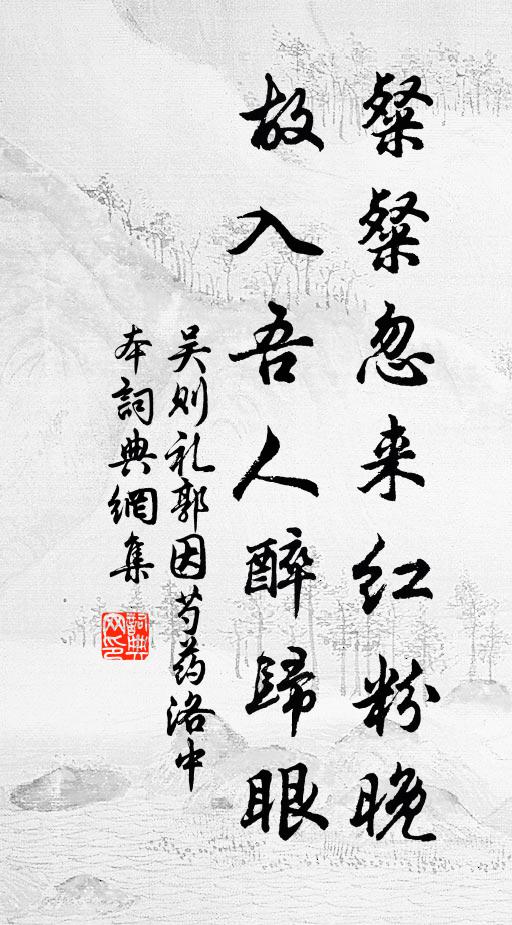 粲粲忽来红粉晚
故入吾人醉歸眼
吴则礼郭因芍药洛中
本詞典網集
詞典网印